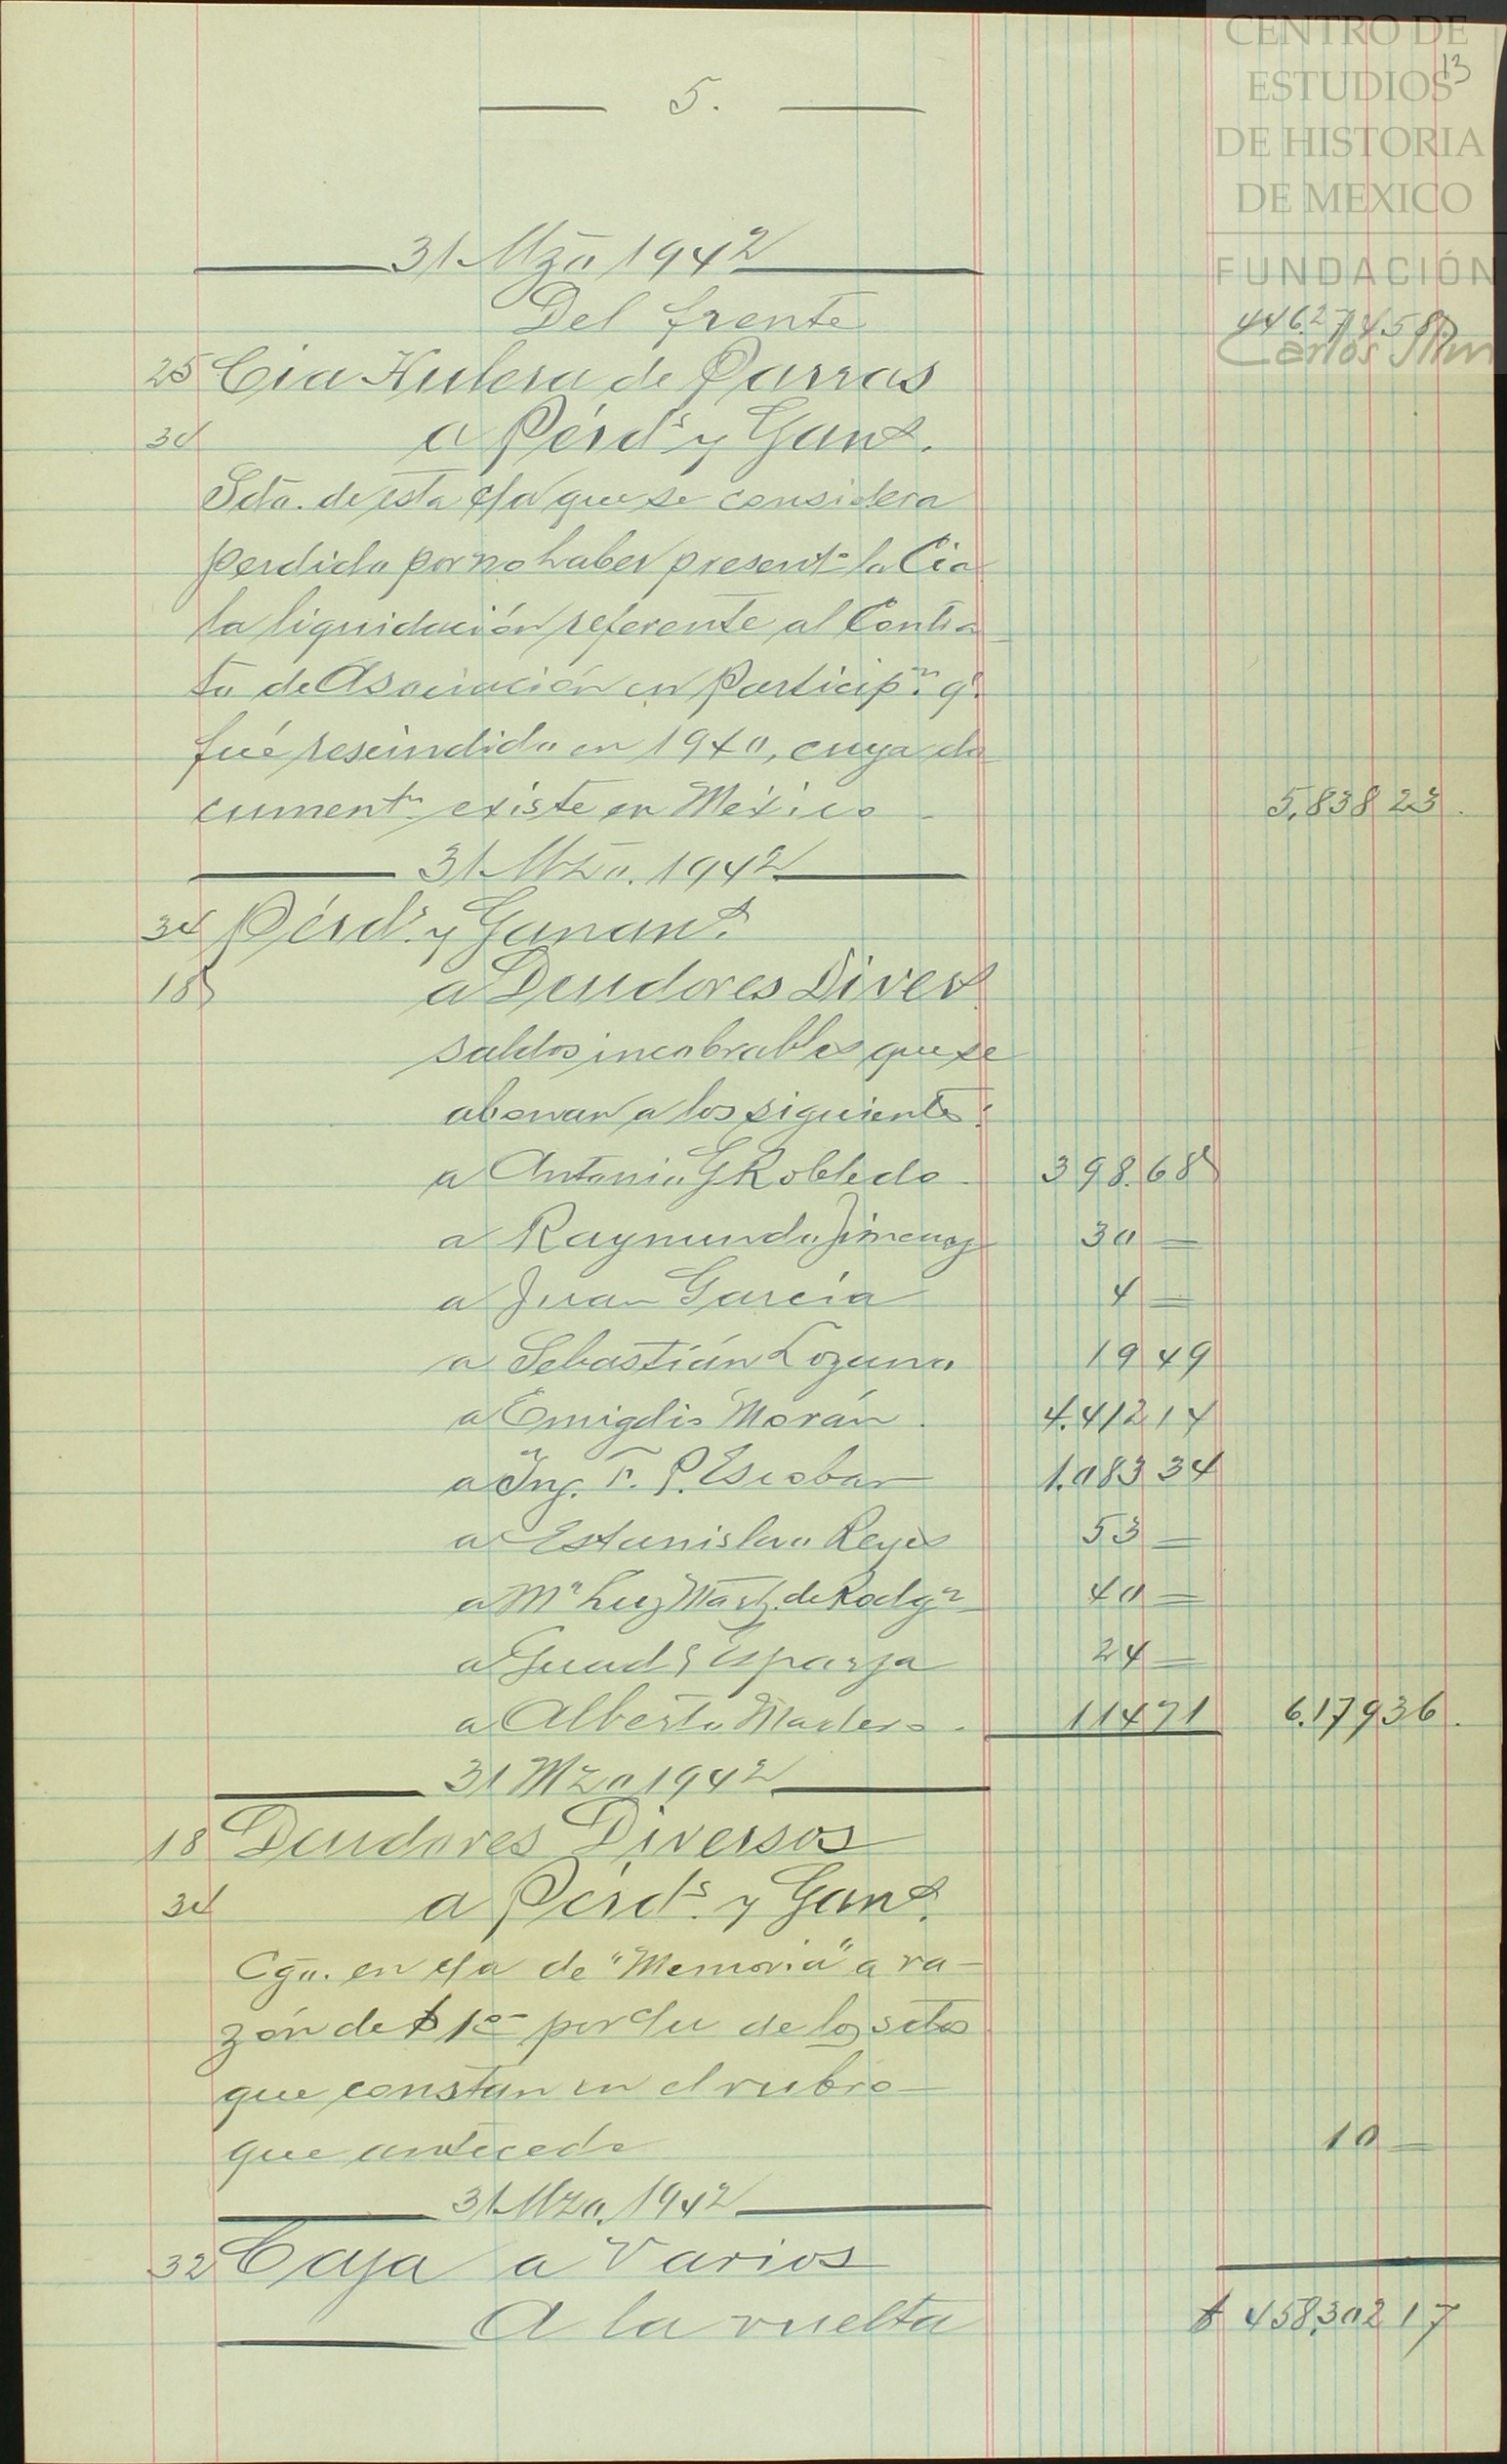 CENTRO DE
ESTUDIOS
DE HISTORIA
DE MEXICO
FUNDACIÓN
Carlos Slim
13
5.
31 Mzo 1942
Del frente 446.274.58
25 Cia Hulera de Parras
34 a Pérds y Gans.
Sdo. de esta c/a que se considera
perdido por no haber presentdo la Cia
la liquidación referente al Contra-
to de Asociación en Participn. q'.
fué rescindido en 1940, cuya do-
cumentn. existe en México 5,838 23.
31 Mzo. 1942
34 Pérds. y Ganans.
18 a Deudores Divers.
saldos incobrables que se
abonan a los siguientes:
a Antonio G Robledo 398.68
a Raymundo Jimenez 30 =
a Juan García 4 =
a Sebastián Lozano 19 49
a Emigdio Morán 4.412 14
a Ing. F. P. Escobar 1.083 34
a Estanislao Reyes 53 =
a Ma Luz Martz. de Rodgz 40 =
a Guad. Esparza 24 =
a Alberto Madero 114 71 6.179 36.
31 Mzo 1942
18 Deudores Diversos
34 a Pérds. y Gans.
Cgo. en c/a de "Memoria" a ra-
zón de $1oo por c/u de los sdos
que constan en el rubro
que antecede 10 =
31 Mzo. 1942
32 Caja a Varios
A la vuelta $ 458,302 17